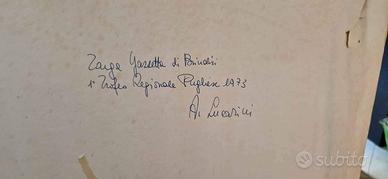 Targa Gazzetta di Brindisi
1° Trofeo Regionale Pugliese 1973
A. Lucarini
subito